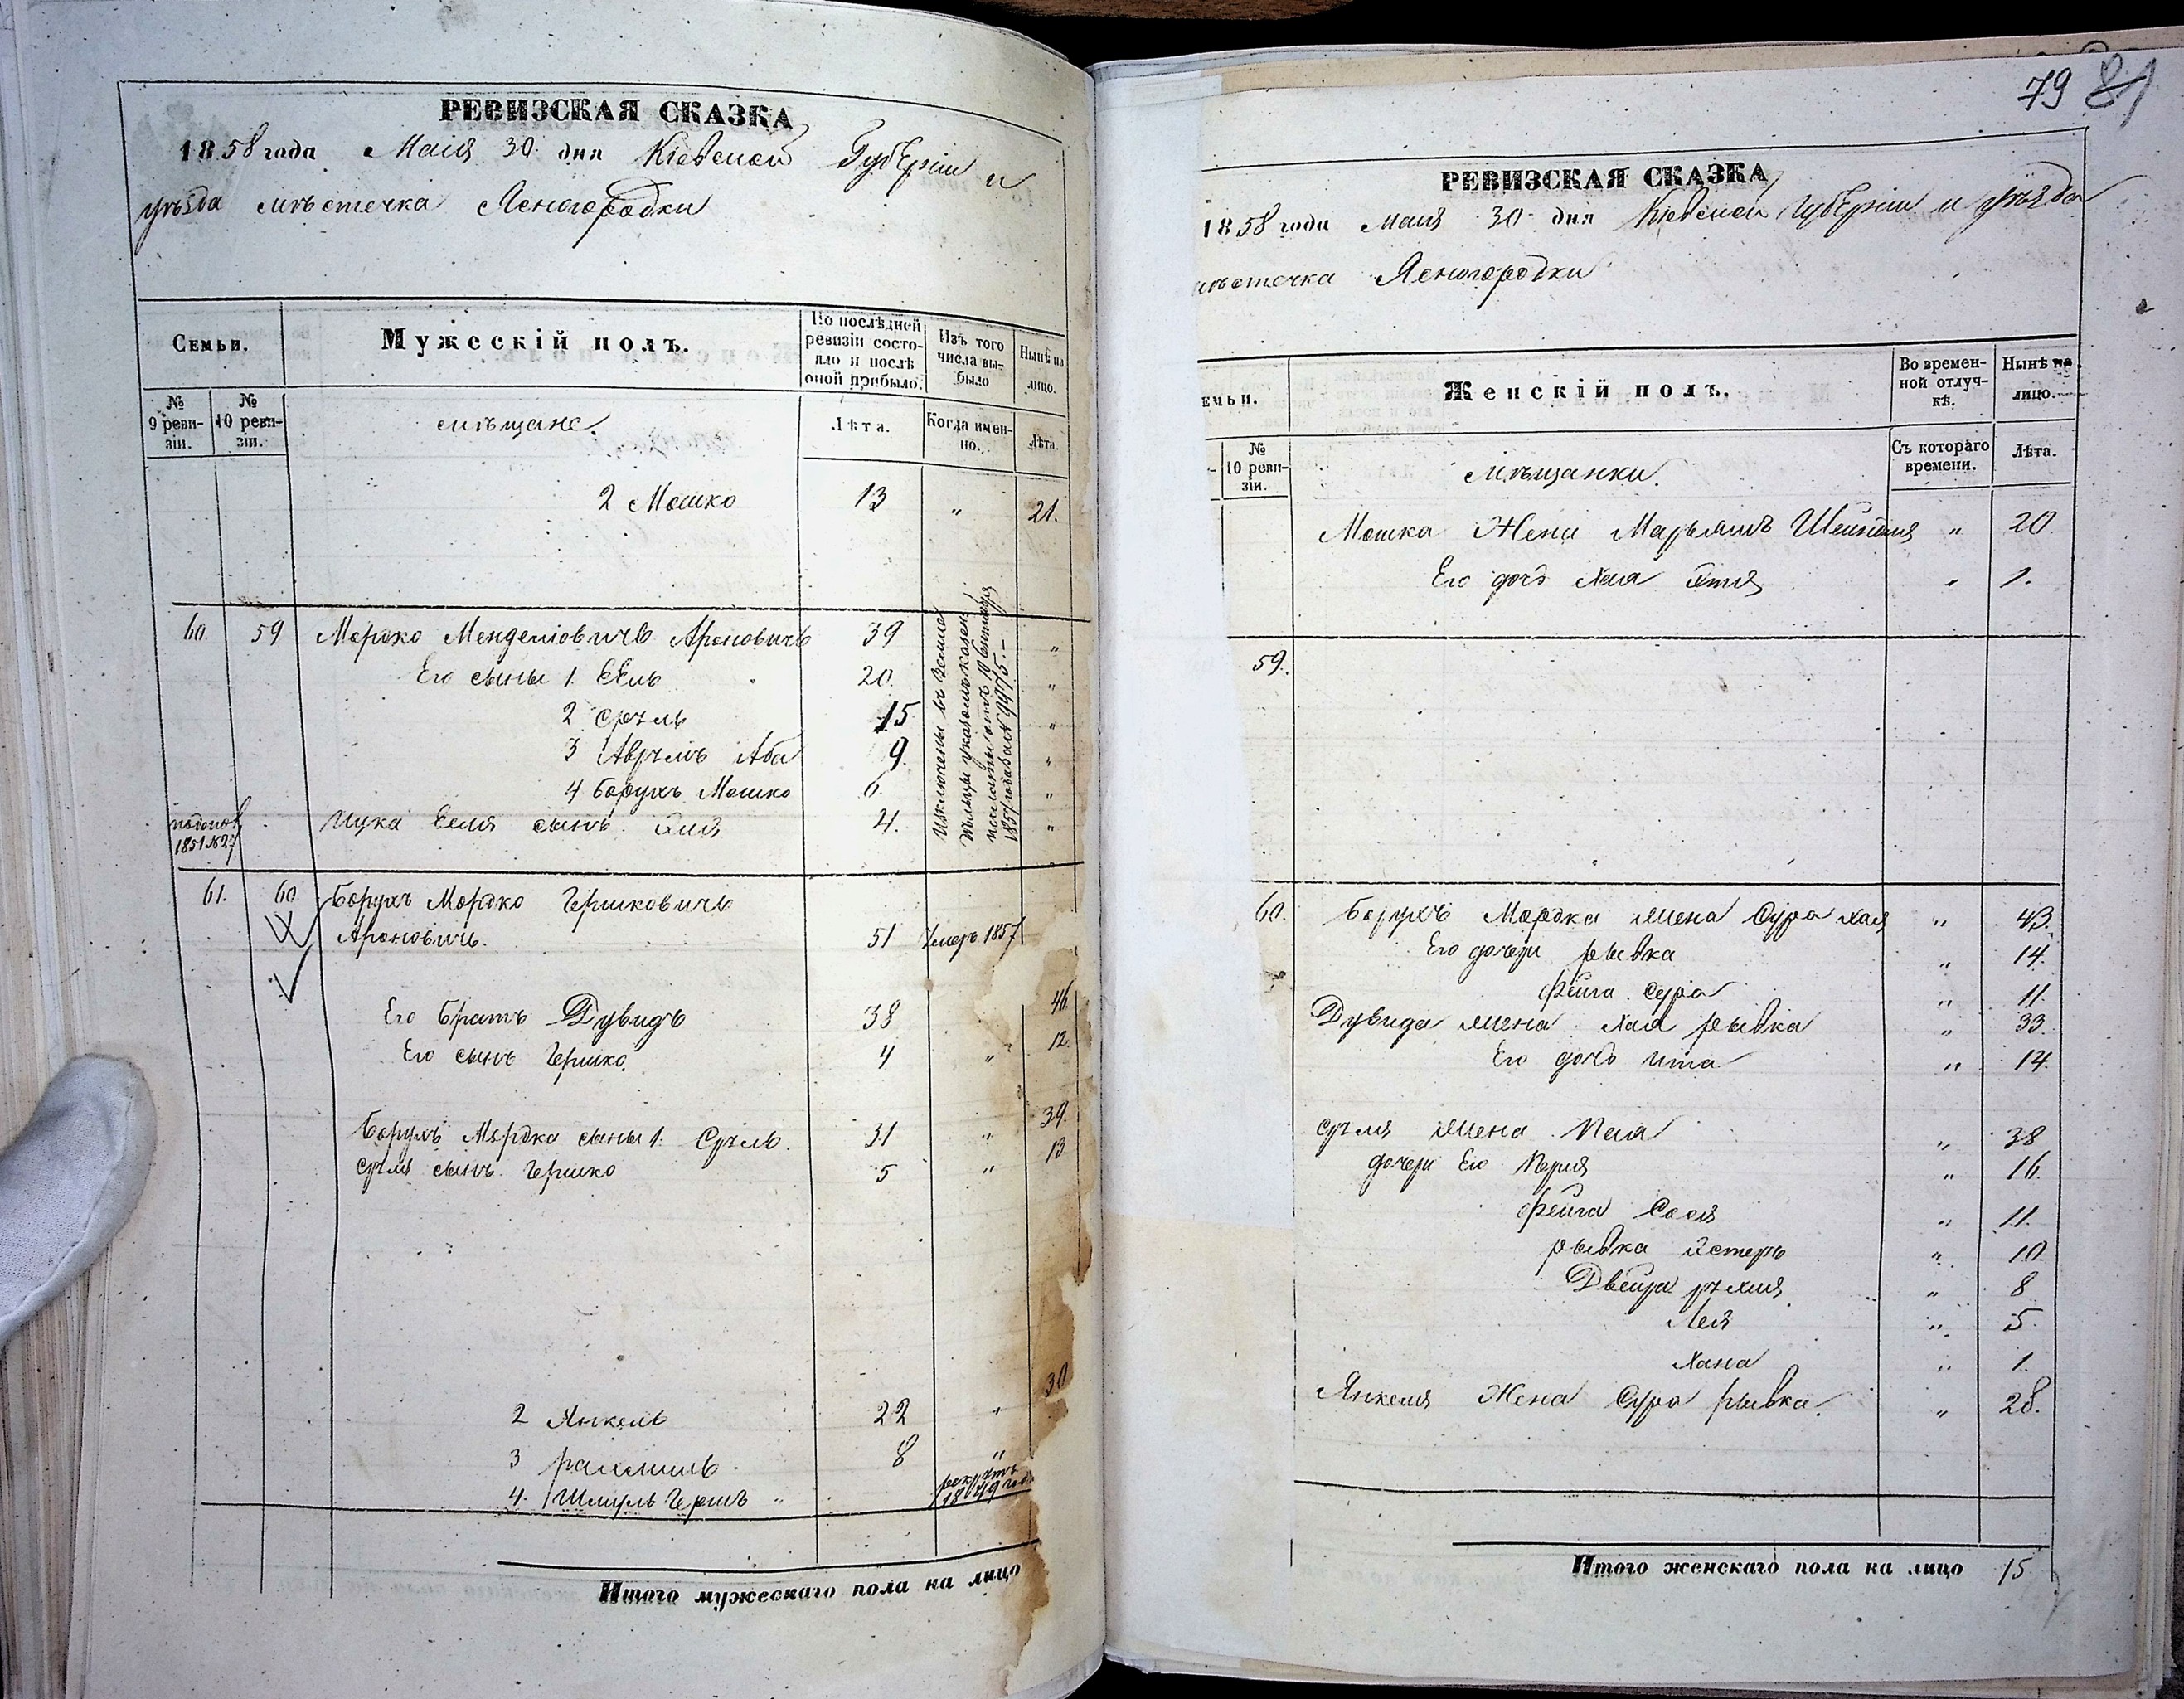 РЕВИЗСКАЯ СКАЗКА
1858 года Маия 30 дня Кіевской Губерніи и
уѣзда мѣстечка Ясногородки
Семьи.
Мужескій полъ.
По послѣдней ревизіи состояло и послѣ оной прибыло.
Изъ того числа выбыло
Нынѣ на лицо.
№ 9 ревизіи.
№ 10 ревизіи.
мѣщане.
Лѣта.
Когда именно.
Лѣта.
2 Мошко 13 " 21.
60. 59 Мордко Менделіовичъ Ароновичъ 39 "
Его сыны 1. 20. "
2 Сруль 15 "
3 Аврумъ Аба 9. "
4 Борухъ Мошко 6. "
1851 № 27 Ицка сынъ 4. "
Изключены въ Земле
дѣльцы указомъ казен:
палаты отъ 10 Сентября
185 года за № 9975.–
61. 60 Борухъ Мордко Гершковичъ
Ароновичъ. 51 Умеръ 1857
Его братъ Дувидъ 38 46
Его сынъ Гершко. 4 " 12.
Борухъ Мордка сыны 1. Сруль. 31 " 39.
Сруля сынъ Гершко 5 " 13
2 Янкель 22 " 30
3 Рахмиль 8 "
4. Шмуль Гершъ " рекрутъ 1849 год.
Итого мужескаго пола на лицо
79 81
РЕВИЗСКАЯ СКАЗКА
1858 года маия 30 дня Кіевской Губерніи и уѣзда
мѣстечка Ясногородки
емьи.
Женскій полъ.
Во временной отлучкѣ.
Нынѣ на лицо.
№ 10 ревизіи.
мѣщанки.
Съ котораго времени.
Лѣта.
Мошка Жена Марьямъ Шейндля " 20
Его дочь Хая " 1.
59.
60. Борухъ Мордка жена Сура Хая " 43.
Его дочери Рывка " 14.
Фейга Сура " 11.
Дувида жена Хая Рывка " 33.
Его дочь Ита " 14.
Сруля жена Пая " 38
дочери Его Перля " 16.
Фейга Сося " 11.
Рывка Эстеръ " 10.
Двейра Рухля " 8
Лея " 5.
Хана " 1.
Янкеля Жена Сура Рывка. " 28.
Итого женскаго пола на лицо 15